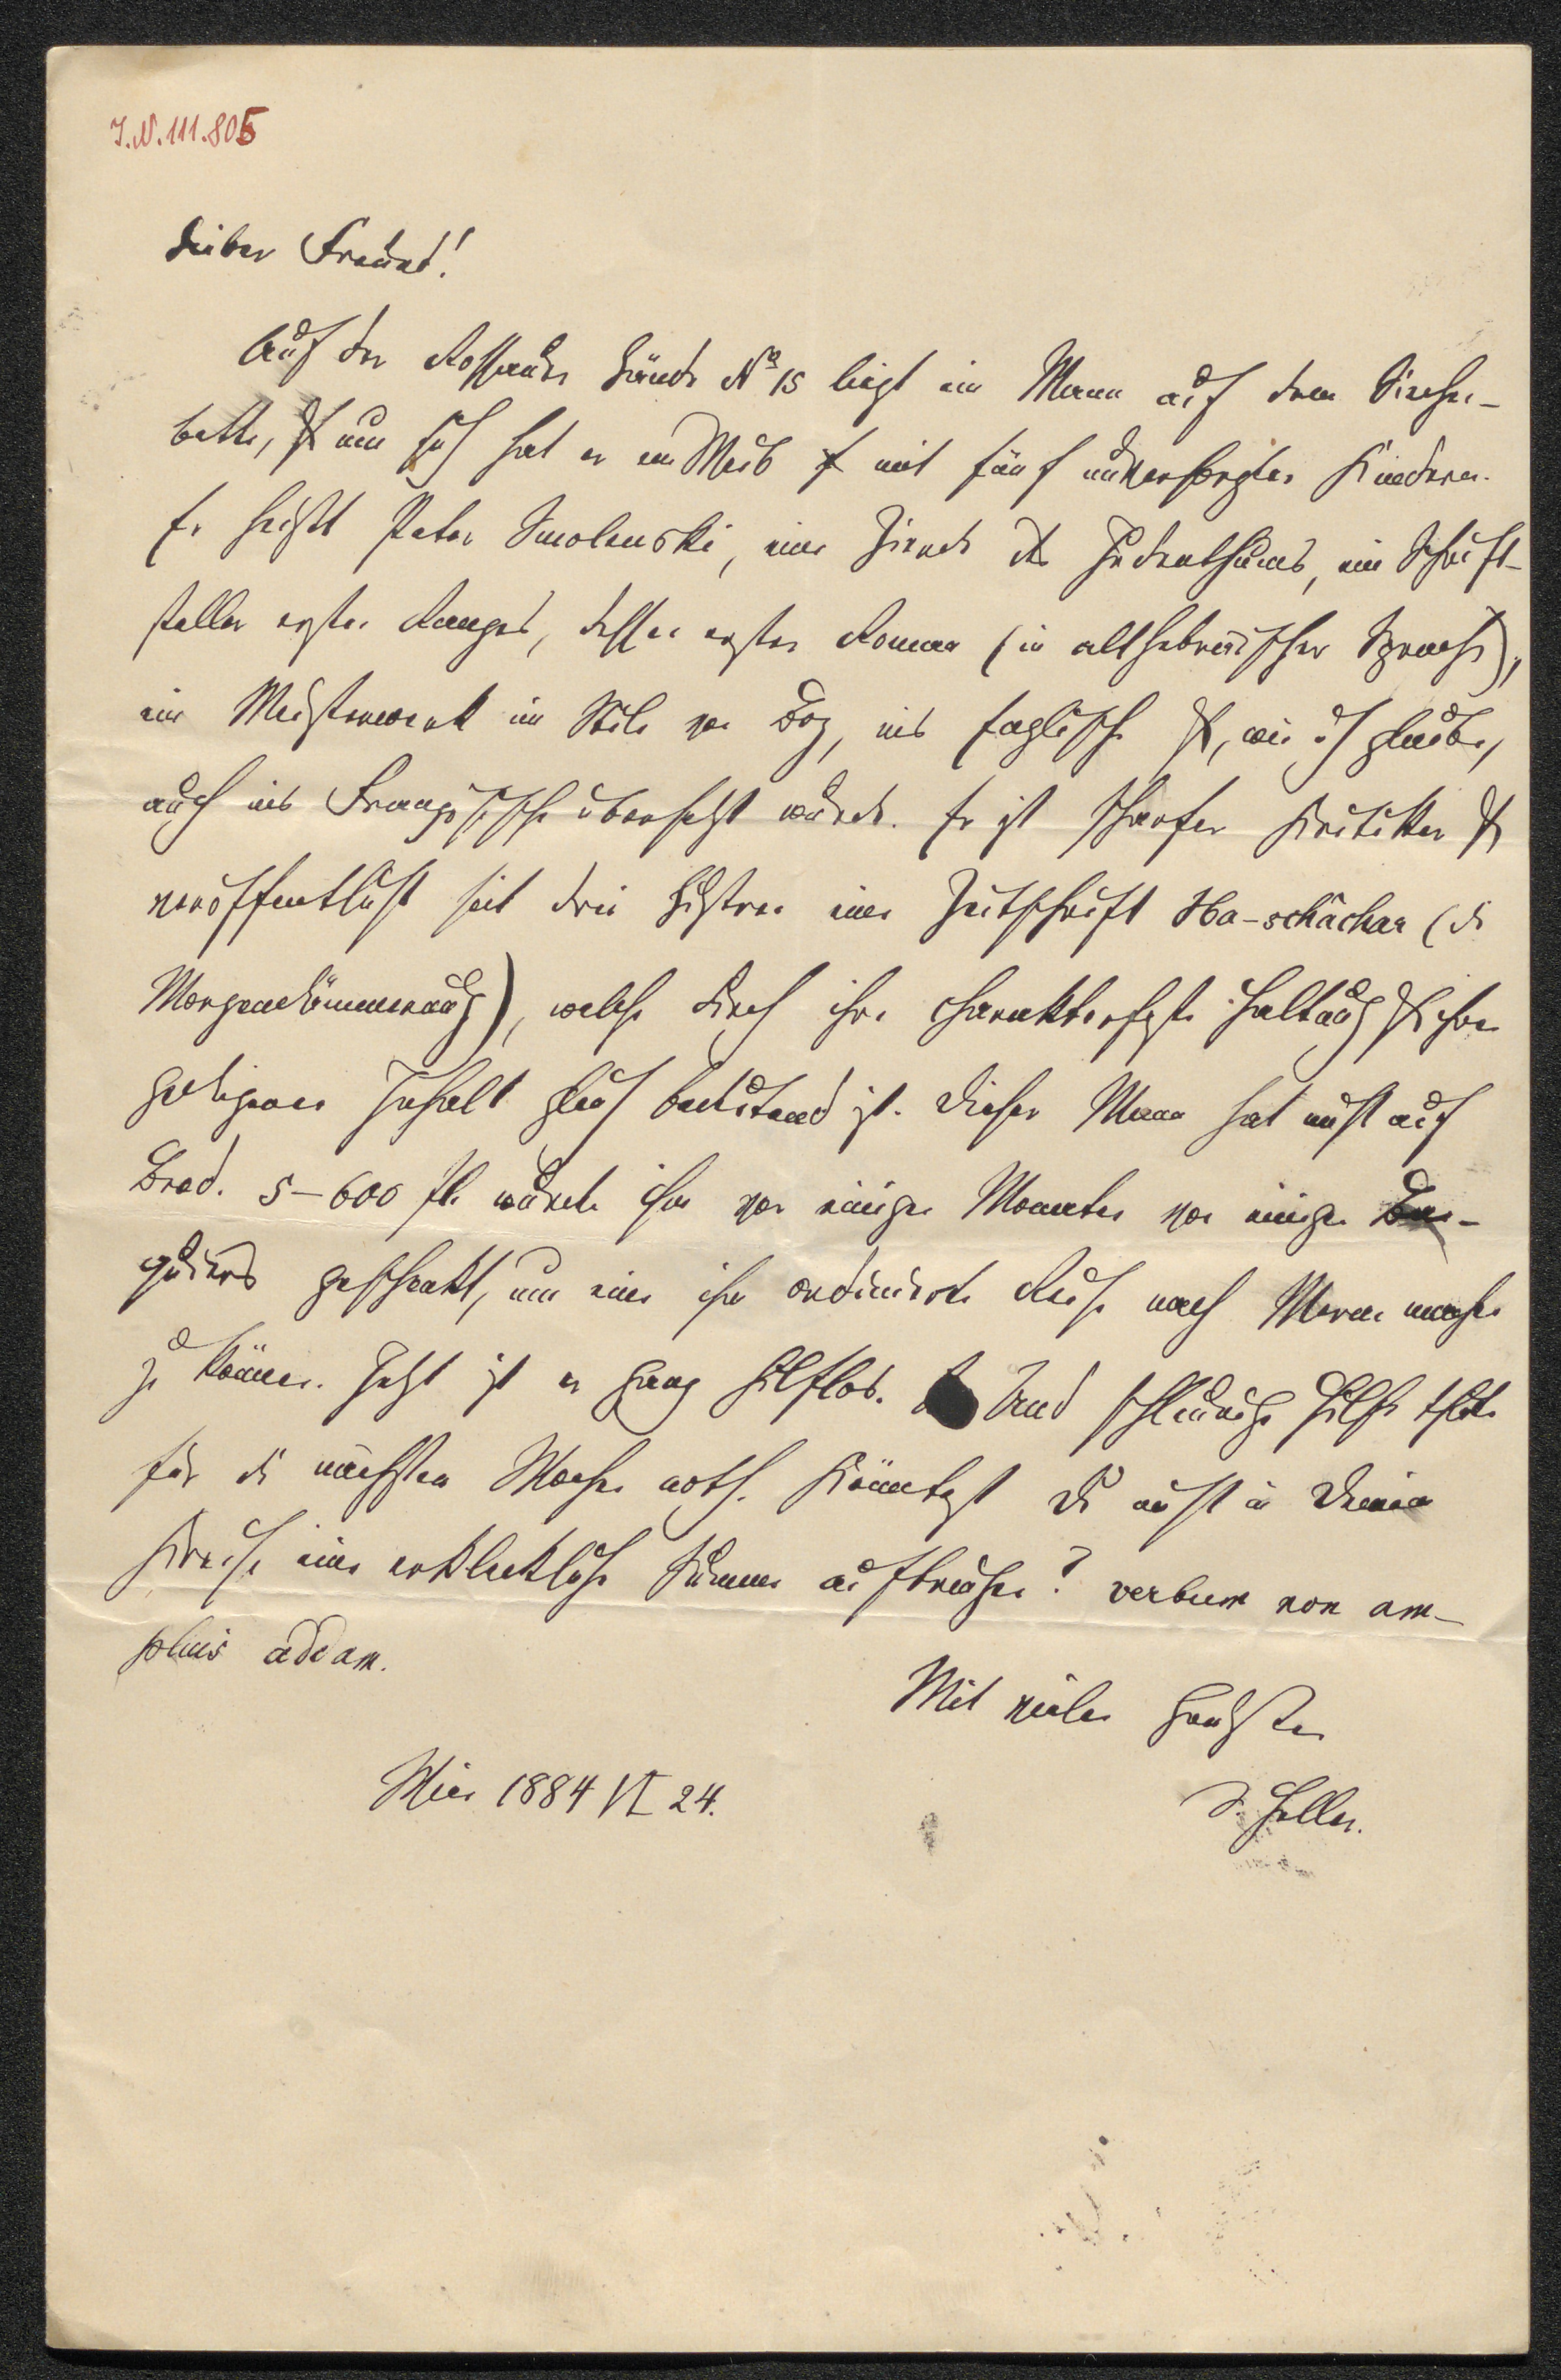 I.N. 111.805
Lieber Freund!
Auf der Rossauer Lände No 15 liegt ein Mann auf dem Siechen-
bette, & um sich hat er ein Weib mit fünf unversorgten Kindern.
Er heißt Peter Smolenski, eine Zierde des Judenthums, ein Schrift-
steller ersten Ranges, dessen erster Roman (in althebräischer Sprache),
ein Meisterwerk im Stile von Boz, ins Englische &, wie ich glaube,
auch ins Französische übersetzt wurde. Er ist scharfer Kritiker &
veröffentlicht seit drei Lustren eine Zeitschrift Ha-schachar (die
Morgendämmerung), welche durch ihre charakterfeste Haltung & ihren
gediegenen Inhalt gleich bedeutend ist. Dieser Mann hat nicht auf
Brod. 5–600 fl. wurden ihm vor einigen Monaten von einigen Ban-
quiers geschenkt, um eine ihm ordinirte Reise nach Meran machen
zu können. Jetzt ist er ganz hilflos. Und schleunige Hilfe thäte
für die nächsten Wochen noth. Könntest Du nicht in Deinem
Kreise eine erkleckliche Summe aufbringen? verbum non am-
plius addam.
Mit vielen Grüßen
Wien 1884 VI 24.
S. Heller.